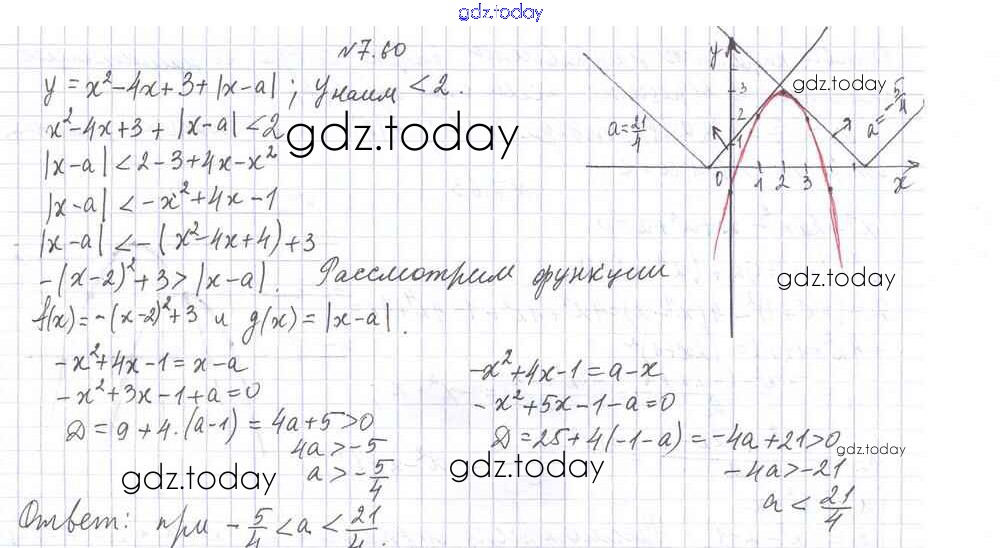 gdz.today
№7.60
y = x² - 4x + 3 + |x - a| ; yнаим < 2.
x² - 4x + 3 + |x - a| < 2
gdz.today
|x - a| < 2 - 3 + 4x - x²
|x - a| < -x² + 4x - 1
|x - a| < -(x² - 4x + 4) + 3
-(x - 2)² + 3 > |x - a|. Рассмотрим функции
f(x) = -(x - 2)² + 3 и g(x) = |x - a|.
y
3
2
1
0 1 2 3 x
a = 21/4
a = -5/4
gdz.today
gdz.today
-x² + 4x - 1 = x - a
-x² + 3x - 1 + a = 0
D = 9 + 4·(a - 1) = 4a + 5 > 0
4a > -5
a > -5/4
gdz.today
-x² + 4x - 1 = a - x
-x² + 5x - 1 - a = 0
D = 25 + 4(-1 - a) = -4a + 21 > 0
gdz.today
-4a > -21
a < 21/4
gdz.today
Ответ: при -5/4 < a < 21/4.